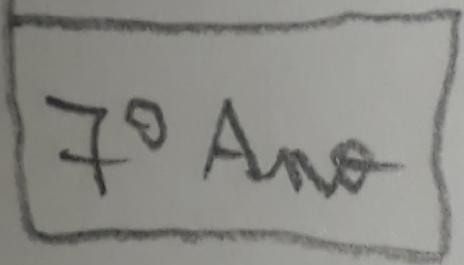 7º Ano